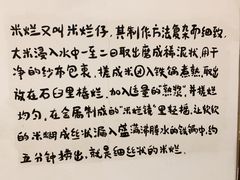 米烂又叫米烂仔,其制作方法复杂而细致,
大米浸入水中一至二日取出磨成稀泥状,用干
净的纱布包裹,搓成米团入铁锅煮熟,取出
放在石臼里捣烂,加入适量的"熟浆",并搓烂
均匀,在金属制成的"米烂镜"里轻搓,让软软
的米糊成丝状漏入盛满沸腾水的铁锅中,约
五分钟捞出,就是细丝米的米烂.